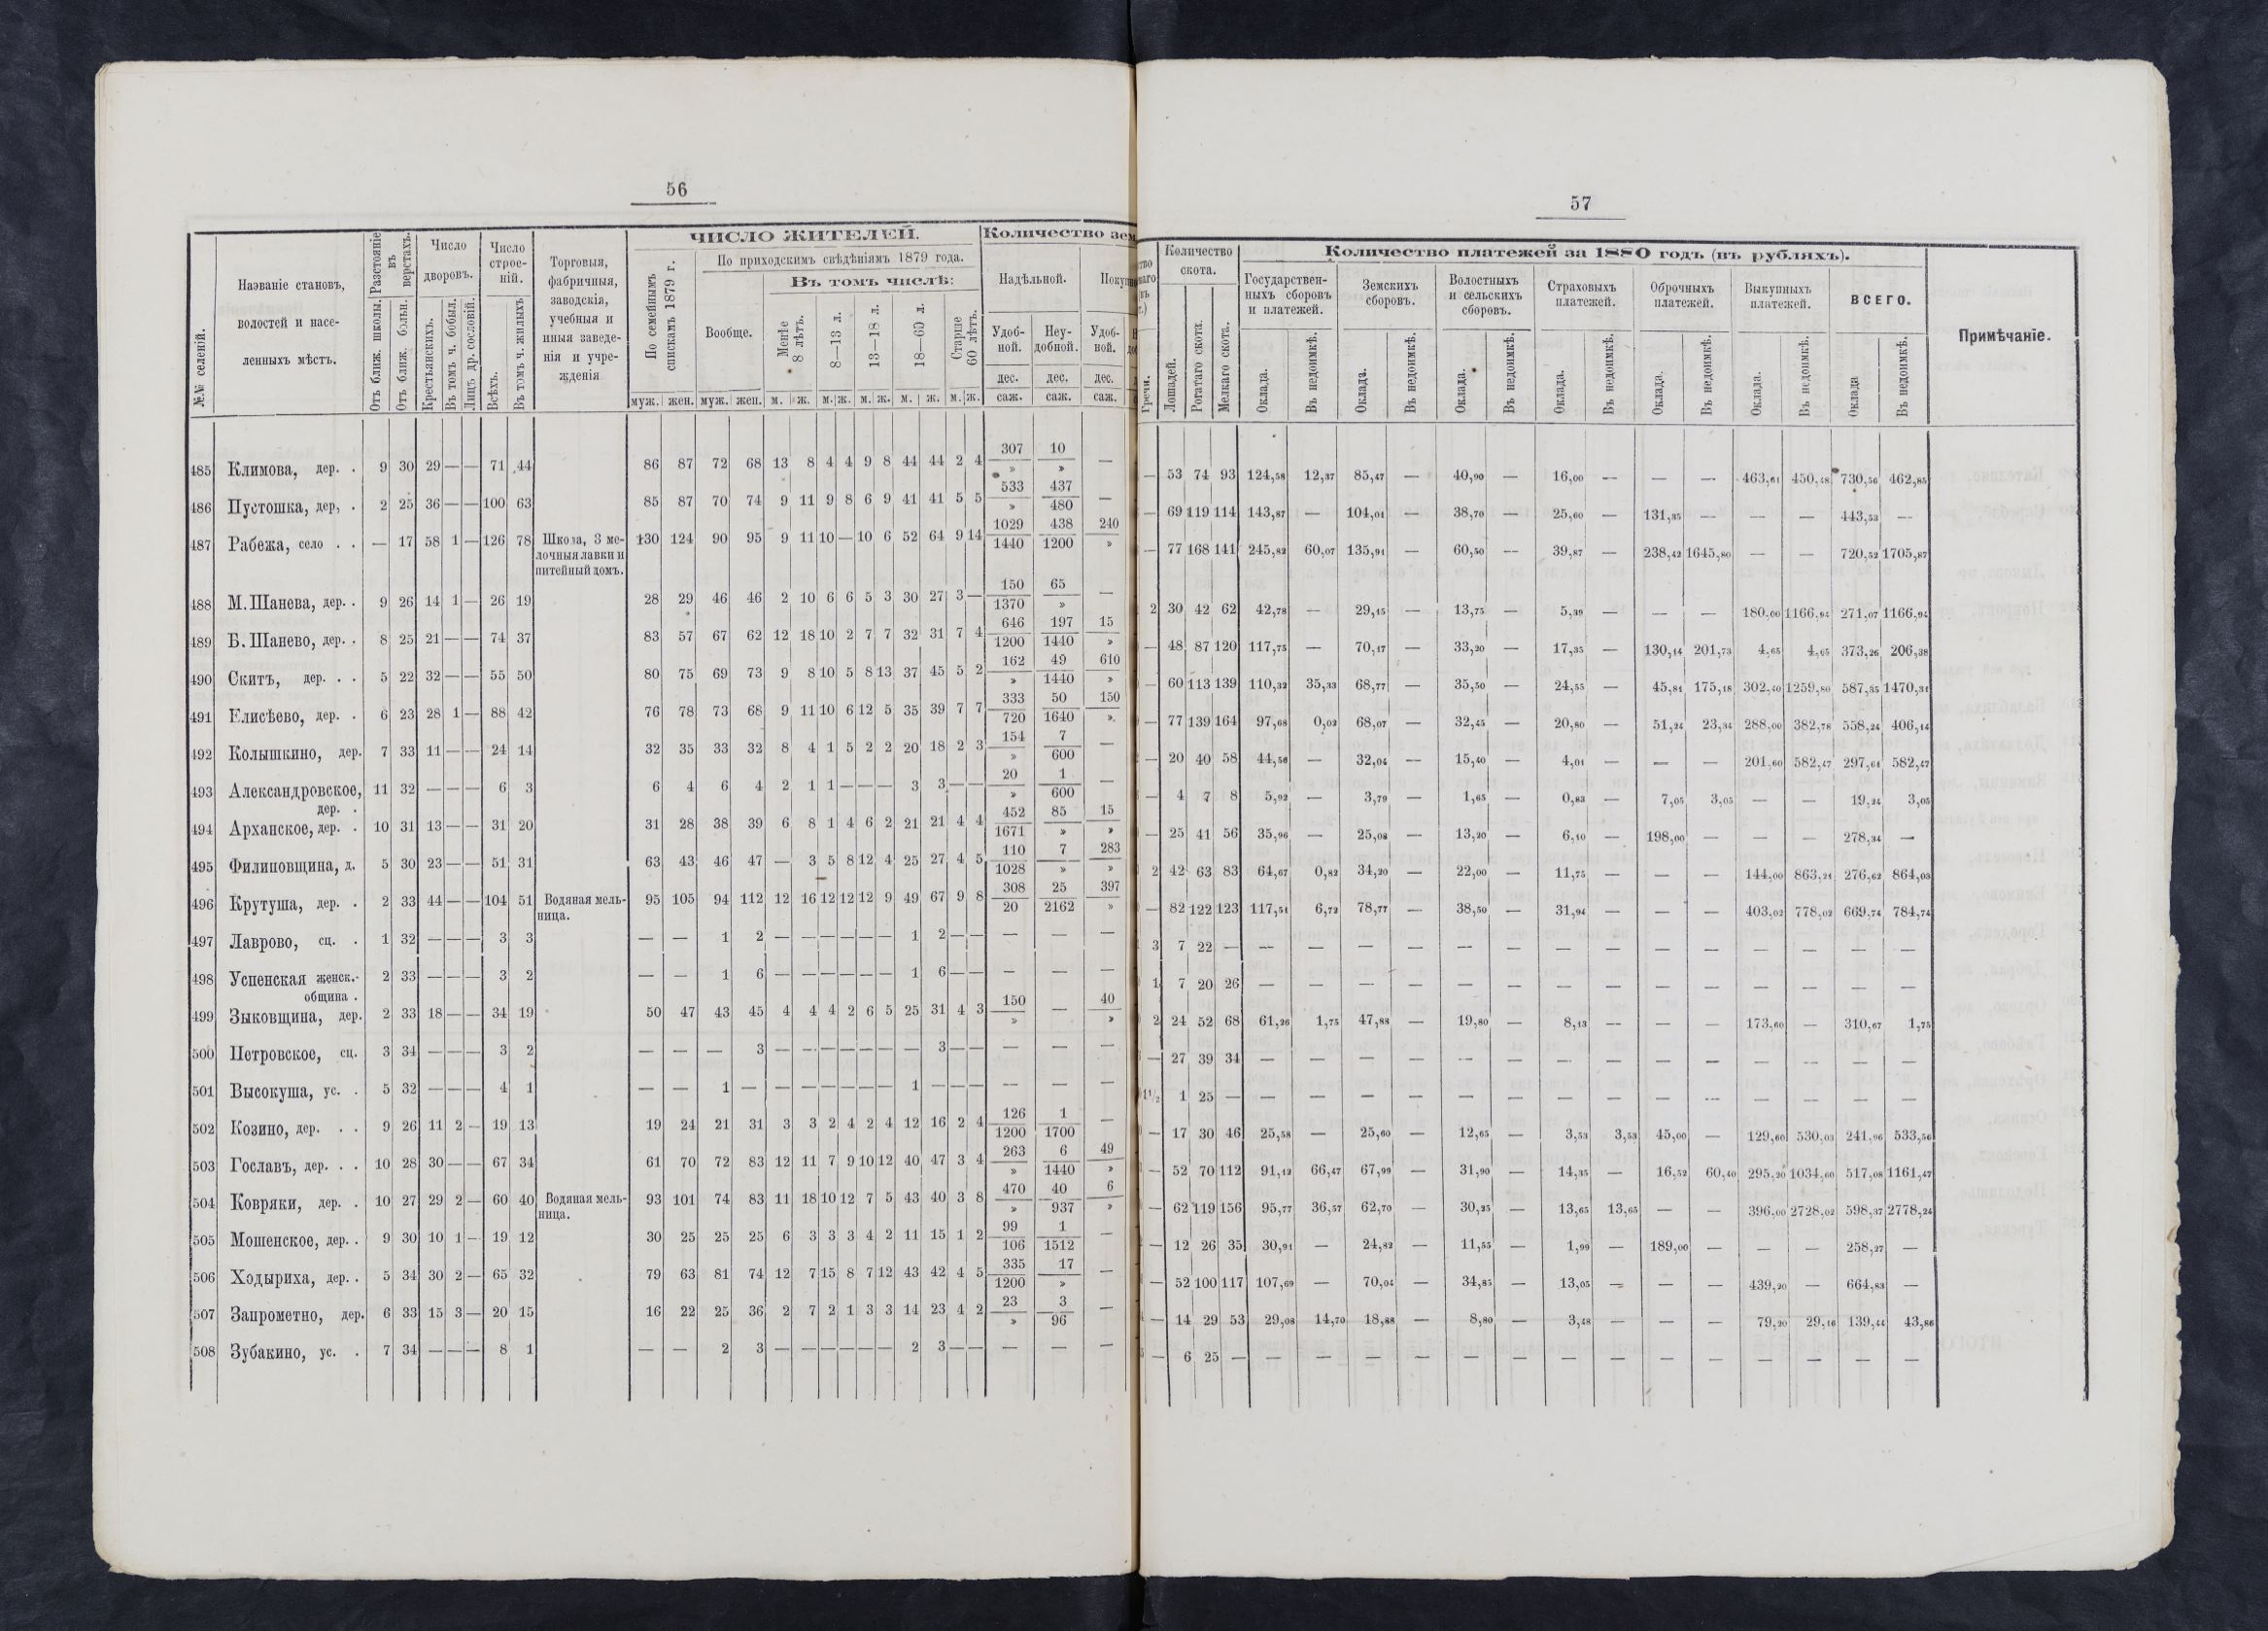 56
ЧИСЛО ЖИТЕЛЕЙ. Количество зем
№№ селеній. Названіе становъ, волостей и населенныхъ мѣстъ. Разстояніе въ верстахъ. Отъ ближ. школы. Отъ ближ. больн. Число дворовъ. Крестьянскихъ. Въ томъ ч. бобыл. Лицъ др. сословій. Число строеній. Всѣхъ. Въ томъ ч. жилыхъ
Торговыя, фабричныя, заводскія, учебныя и иныя заведенія и учрежденія
По семейнымъ спискамъ 1879 г. По приходскимъ свѣдѣніямъ 1879 года. Вообще. Въ томъ числѣ: Менѣе 8 лѣтъ. 8—13 л. 13—18 л. 18—60 л. Старше 60 лѣтъ.
Надѣльной. Удобной. Неудобной. Удобной. дес. саж. дес. саж. дес. саж.
муж. жен. муж. жен. м. ж. м. ж. м. ж. м. ж. м. ж.
485 Климова, дер. . 9 30 29 — — 71 44 86 87 72 68 13 8 4 4 9 8 44 44 2 4 307/» 10/» —
486 Пустошка, дер, . 2 25 36 — — 100 63 85 87 70 74 9 11 9 8 6 9 41 41 5 5 533/» 437/480 —
487 Рабежа, село . . — 17 58 1 — 126 78 Школа, 3 мелочныя лавки и питейный домъ. 130 124 90 95 9 11 10 — 10 6 52 64 9 14 1029/1440 438/1200 240/»
488 М. Шанева, дер. . 9 26 14 1 — 26 19 28 29 46 46 2 10 6 6 5 3 30 27 3 — 150/1370 65/» —
489 Б. Шанево, дер. . 8 25 21 — — 74 37 83 57 67 62 12 18 10 2 7 7 32 31 7 4 646/1200 197/1440 15/»
490 Скитъ, дер. . . 5 22 32 — — 55 50 80 75 69 73 9 8 10 5 8 13 37 45 5 2 162/» 49/1440 610/»
491 Елисѣево, дер. . 6 23 28 1 — 88 42 76 78 73 68 9 11 10 6 12 5 35 39 7 7 333/720 50/1640 150/»
492 Колышкино, дер. 7 33 11 — — 24 14 32 35 33 32 8 4 1 5 2 2 20 18 2 3 154/» 7/600 —
493 Александровское, дер. . 11 32 — — — 6 3 6 4 6 4 2 1 1 — — — 3 3 — — 20/» 1/600 —
494 Арханское, дер. . 10 31 13 — — 31 20 31 28 38 39 6 8 1 4 6 2 21 21 4 4 452/1671 85/» 15/»
495 Филиповщина, д. 5 30 23 — — 51 31 63 43 46 47 — 3 5 8 12 4 25 27 4 5 110/1028 7/» 283/»
496 Крутуша, дер. . 2 33 44 — — 104 51 Водяная мельница. 95 105 94 112 12 16 12 12 12 9 49 67 9 8 308/20 25/2162 397/»
497 Лаврово, сц. . 1 32 — — — 3 3 — — 1 2 — — — — — — 1 2 — — — — —
498 Успенская женск. община . 2 33 — — — 3 2 — — 1 6 — — — — — — 1 6 — — — — —
499 Зыковщина, дер. 2 33 18 — — 34 19 50 47 43 45 4 4 4 2 6 5 25 31 4 3 150/» — 40/»
500 Петровское, сц. 3 34 — — — 3 2 — — — 3 — — — — — — — 3 — — — — —
501 Высокуша, ус. . 5 32 — — — 4 1 — — 1 — — — — — — — 1 — — — — — —
502 Козино, дер. . . 9 26 11 2 — 19 13 19 24 21 31 3 3 2 4 2 4 12 16 2 4 126/1200 1/1700 —
503 Гославъ, дер. . . 10 28 30 — — 67 34 61 70 72 83 12 11 7 9 10 12 40 47 3 4 263/» 6/1440 49/»
504 Ковряки, дер. . 10 27 29 2 — 60 40 Водяная мельница. 93 101 74 83 11 18 10 12 7 5 43 40 3 8 470/» 40/937 6/»
505 Мошенское, дер. . 9 30 10 1 — 19 12 30 25 25 25 6 3 3 3 4 2 11 15 1 2 99/106 1/1512 —
506 Ходыриха, дер. . 5 34 30 2 — 65 32 79 63 81 74 12 7 15 8 7 12 43 42 4 5 335/1200 17/» —
507 Запрометно, дер. 6 33 15 3 — 20 15 16 22 25 36 2 7 2 1 3 3 14 23 4 2 23/» 3/96 —
508 Зубакино, ус. . 7 34 — — — 8 1 — — 2 3 — — — — — — 2 3 — — — — —
57
Количество скота. Количество платежей за 1880 годъ (въ рубляхъ).
Гречи. Лошадей. Рогатаго скота. Мелкаго скота. Государственныхъ сборовъ и платежей. Земскихъ сборовъ. Волостныхъ и сельскихъ сборовъ. Страховыхъ платежей. Оброчныхъ платежей. Выкупныхъ платежей. ВСЕГО. Примѣчаніе.
Оклада. Въ недоимкѣ. Оклада. Въ недоимкѣ. Оклада. Въ недоимкѣ. Оклада. Въ недоимкѣ. Оклада. Въ недоимкѣ. Оклада. Въ недоимкѣ. Оклада Въ недоимкѣ.
— 53 74 93 124,58 12,37 85,47 — 40,90 — 16,00 — — — 463,61 450,48 730,56 462,85
— 69 119 114 143,87 — 104,01 — 38,70 — 25,60 — 131,35 — — — 443,53 —
— 77 168 141 245,82 60,07 135,91 — 60,50 — 39,87 — 238,42 1645,80 — — 720,52 1705,87
2 30 42 62 42,78 — 29,15 — 13,75 — 5,39 — — — 180,00 1166,94 271,07 1166,94
— 48 87 120 117,75 — 70,17 — 33,20 — 17,35 — 130,14 201,73 4,65 4,65 373,26 206,38
— 60 113 139 110,32 35,33 68,77 — 35,50 — 24,55 — 45,81 175,18 302,40 1259,80 587,35 1470,31
— 77 139 164 97,68 0,02 68,07 — 32,45 — 20,80 — 51,24 23,34 288,00 382,78 558,24 406,14
— 20 40 58 44,56 — 32,04 — 15,40 — 4,01 — — — 201,60 582,47 297,61 582,47
— 4 7 8 5,92 — 3,79 — 1,65 — 0,83 — 7,05 3,05 — — 19,24 3,05
— 25 41 56 35,96 — 25,08 — 13,20 — 6,10 — 198,00 — — — 278,34 —
2 42 63 83 64,67 0,82 34,20 — 22,00 — 11,75 — — — 144,00 863,21 276,62 864,03
— 82 122 123 117,51 6,72 78,77 — 38,50 — 31,94 — — — 403,02 778,02 669,74 784,74
3 7 22 — — — — — — — — — — — — — — —
1 7 20 26 — — — — — — — — — — — — — —
2 24 52 68 61,26 1,75 47,88 — 19,80 — 8,13 — — — 173,60 — 310,67 1,75
— 27 39 34 — — — — — — — — — — — — — —
1 25 — — — — — — — — — — — — — — —
— 17 30 46 25,58 — 25,60 — 12,65 — 3,53 3,53 45,00 — 129,60 530,03 241,96 533,56
— 52 70 112 91,12 66,47 67,99 — 31,90 — 14,35 — 16,52 60,40 295,20 1034,60 517,08 1161,47
— 62 119 156 95,77 36,57 62,70 — 30,25 — 13,65 13,65 — — 396,00 2728,02 598,37 2778,24
— 12 26 35 30,91 — 24,82 — 11,55 — 1,99 — 189,00 — — — 258,27 —
— 52 100 117 107,69 — 70,04 — 34,85 — 13,05 — — — 439,20 — 664,83 —
— 14 29 53 29,08 14,70 18,88 — 8,80 — 3,48 — — — 79,20 29,16 139,44 43,86
— 6 25 — — — — — — — — — — — — — — —